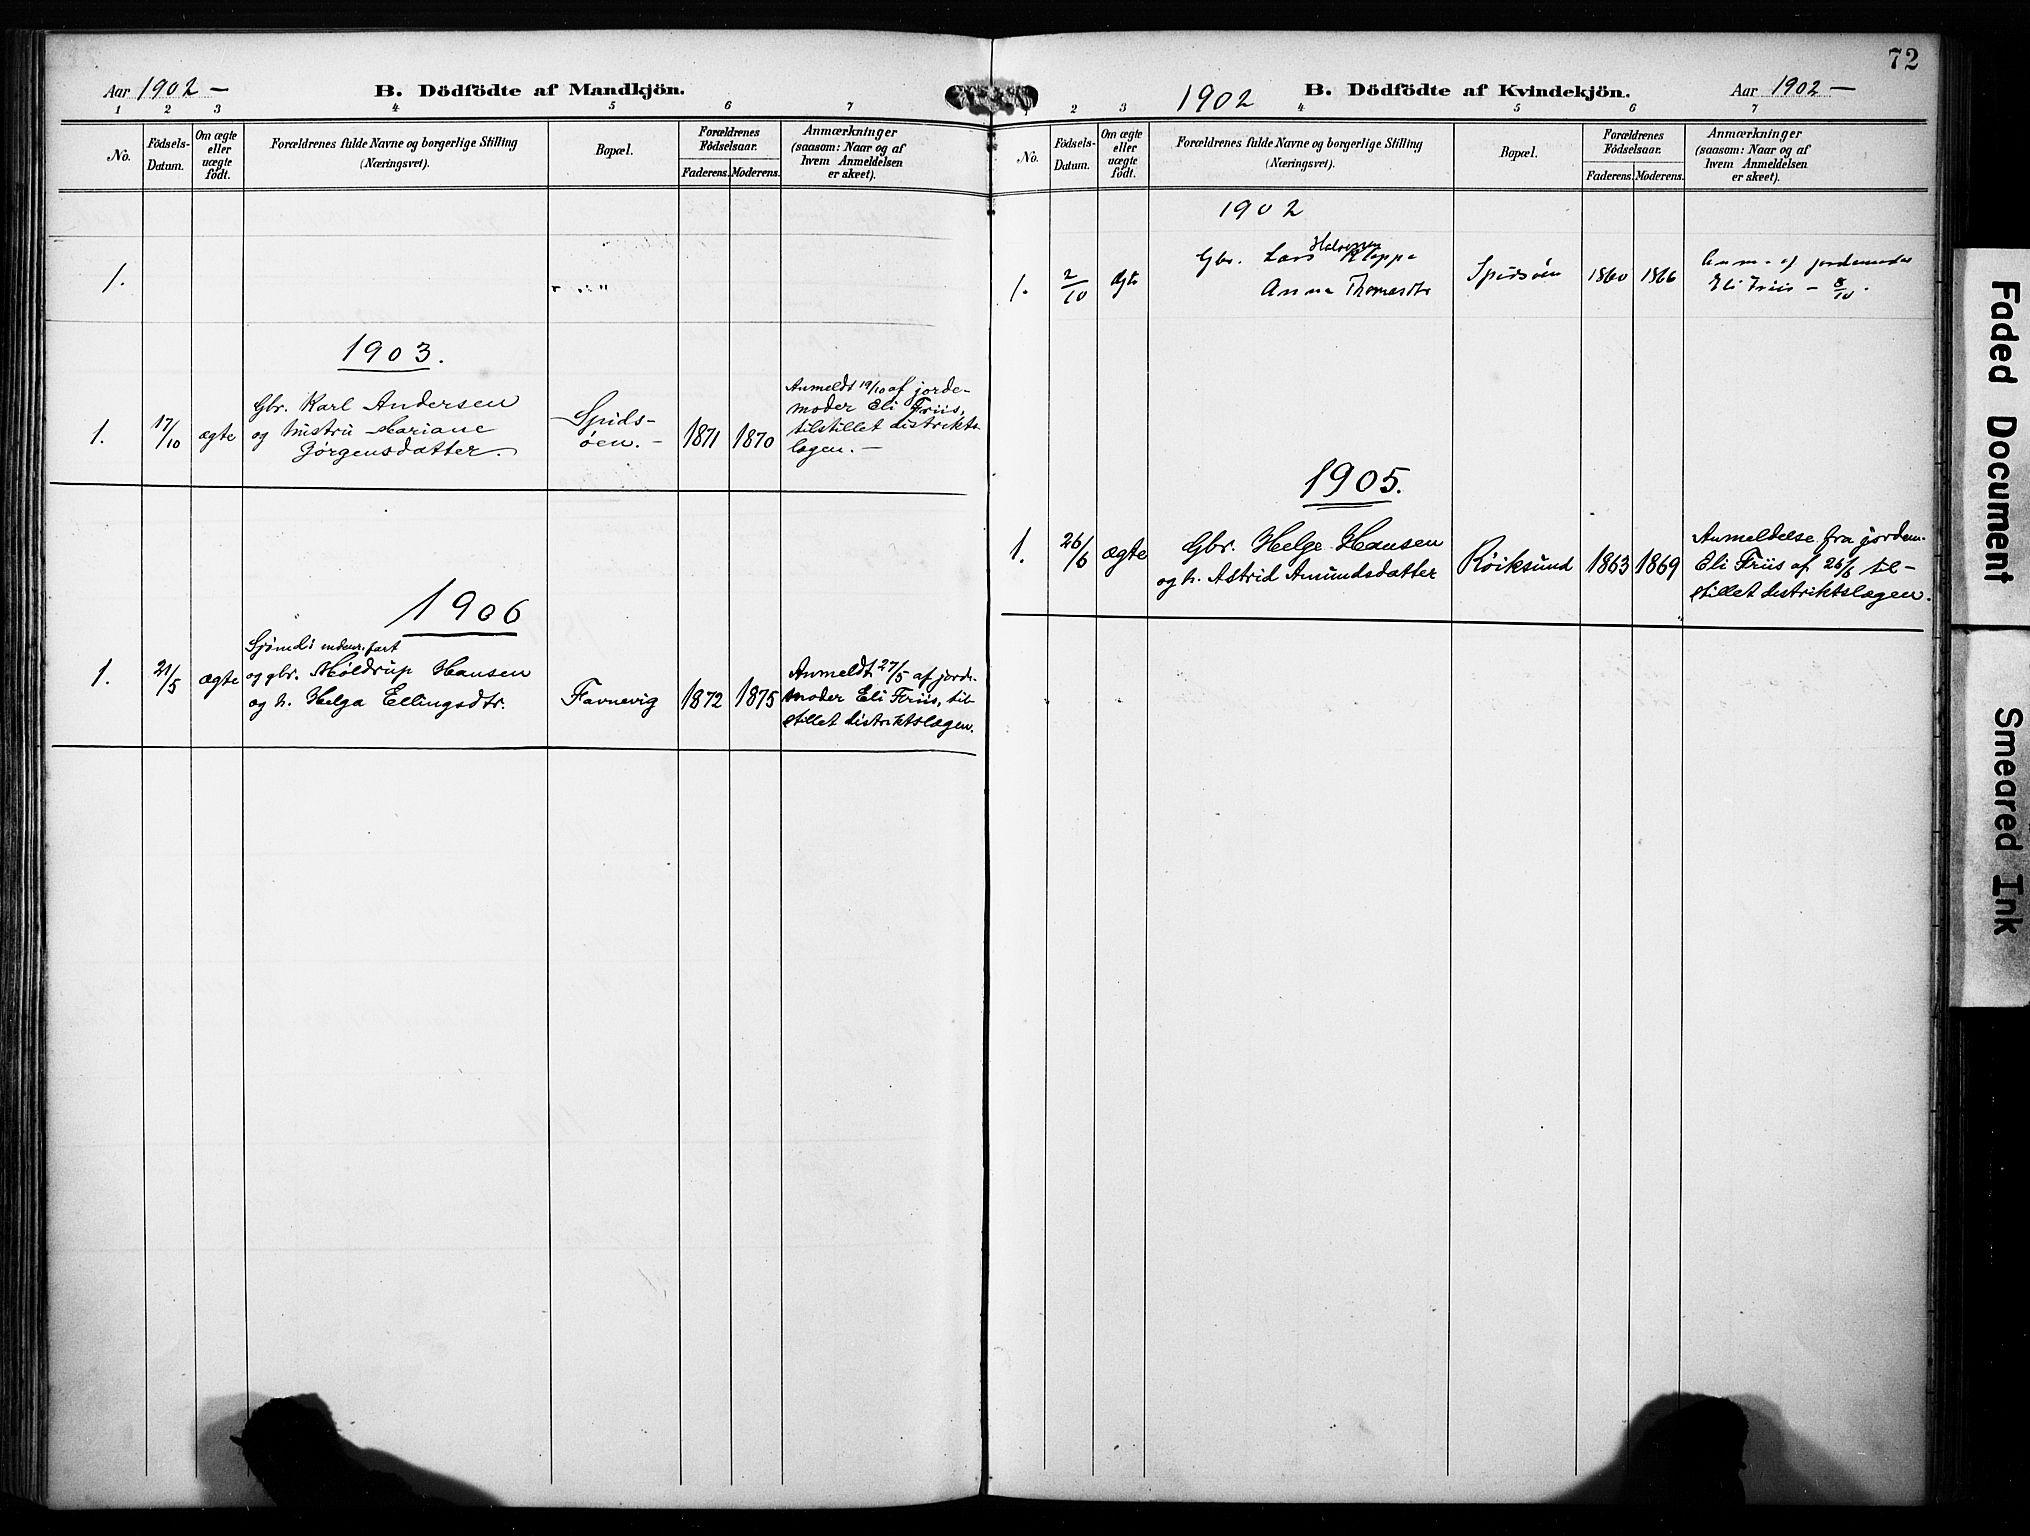 Aar 1902 –
B. Dödfödte af Mandkjön.
1 2 3 4 5 6 7
No.
Födsels-
Datum.
Om ægte
eller
uægte
födt.
Forældrenes fulde Navne og borgerlige Stilling
(Næringsvei).
Bopæl.
Forældrenes
Födselsaar.
Faderens. Moderens.
Anmærkninger
(saasom: Naar og af
hvem Anmeldelsen
er skeet).
1.
1903.
1. 17/10 ægte
Gbr. Karl Andersen
og hustru Mariane
Jørgensdatter.
Spids-
øen. –
1871 1870
Anmeldt 19/10 af jorde-
moder Eli Friis,
tilstillet distrikts-
lægen. –
1906
1. 21/5 ægte
Sjømd i indenr. fart
og gbr. Møldrup Hansen
og h. Helga Ellingsdtr.
Favnevig
1872 1875
Anmeldt 27/5 af jorde-
moder Eli Friis, til-
stillet distriktslægen.
72
1902
B. Dödfödte af Kvindekjön.
Aar 1902 –
1 2 3 4 5 6 7
No.
Födsels-
Datum.
Om ægte
eller
uægte
födt.
Forældrenes fulde Navne og borgerlige Stilling
(Næringsvei).
Bopæl.
Forældrenes
Födselsaar.
Faderens. Moderens.
Anmærkninger
(saasom: Naar og af
hvem Anmeldelsen
er skeet).
1902
1. 2/10 ægte
Halvorsen
Gbr. Lars Kleppe
Anna Thomasdtr
Spidsøen
1860 1866
Anm. af jordemoder
Eli Friis – 8/10.
1905.
1. 26/6 ægte
Gbr. Helge Hansen
og h. Astrid Amundsdatter
Røiksund
1863 1869
Anmeldelse fra jordem.
Eli Friis af 26/6 til-
stillet distriktslægen.
Faded Document
Smeared Ink